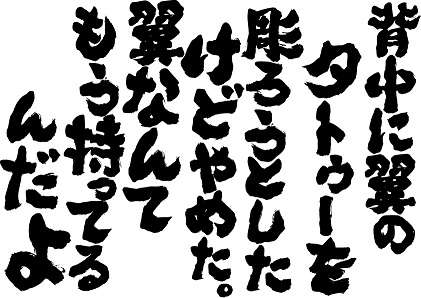 背中に翼の
タトゥーを
彫ろうとした
けどやめた。
翼なんて
もう持ってる
んだよ